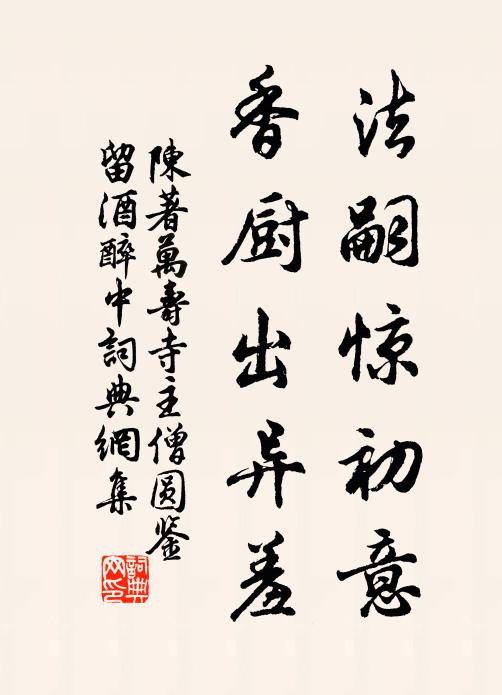 法嗣惊初意
香厨出异羞
陳著萬壽寺主僧圓鉴
留酒醉中詞典網集
詞典网印